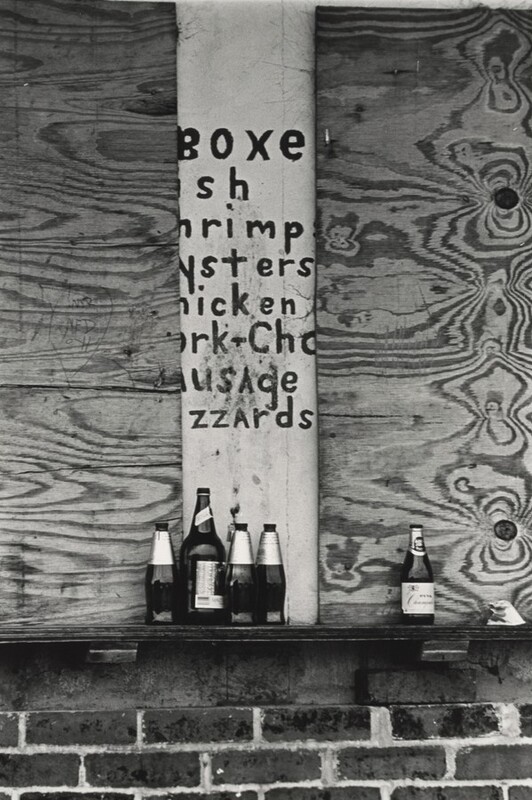 BOXE
sh
hrimp
ysters
hicken
ork-Cho
AUSAge
zzArds